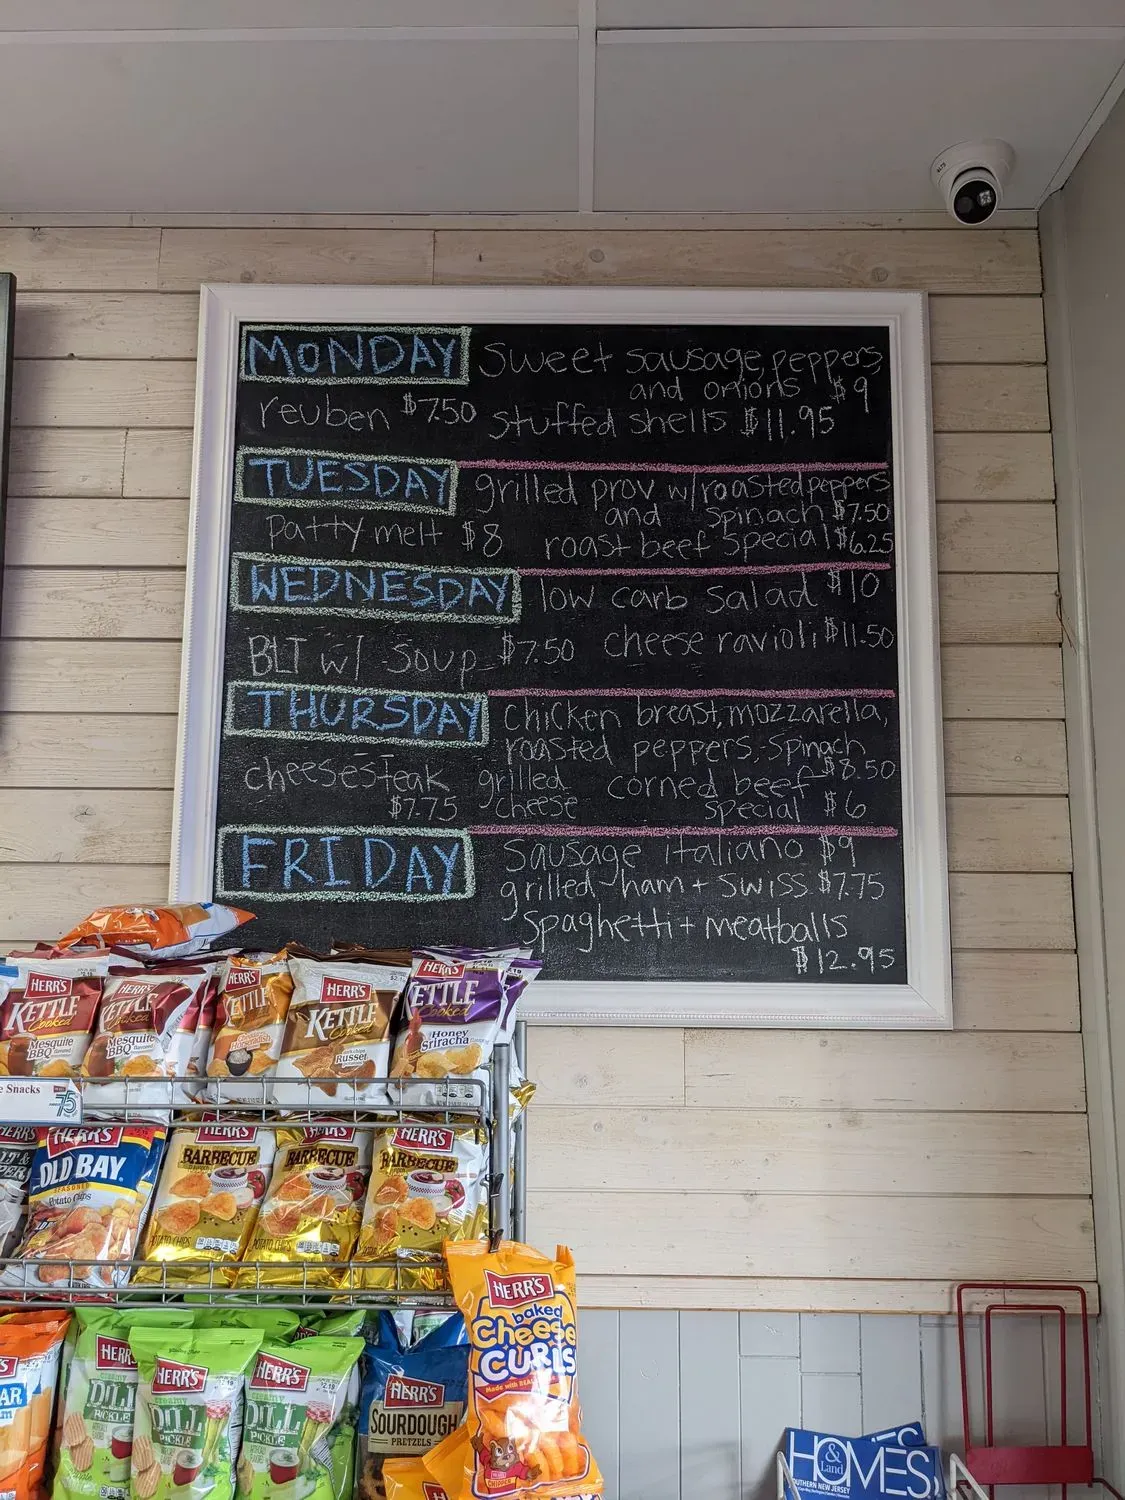 MONDAY
sweet sausage, peppers,
and onions $9
reuben $7.50
stuffed shells $11.95
TUESDAY
grilled prov w/roasted peppers
and spinach $7.50
patty melt $8
roast beef special $6.25
WEDNESDAY
low carb salad $10
BLT w/ soup $7.50
cheese ravioli $11.50
THURSDAY
chicken breast, mozzarella,
roasted peppers, spinach
$8.50
cheesesteak
$7.75
grilled
cheese
corned beef
special $6
FRIDAY
sausage italiano $9
grilled ham + swiss $7.75
spaghetti + meatballs
$12.95
HERR'S
KETTLE
Cooked
Mesquite
BBQ
HERR'S
KETTLE
Cooked
Mesquite
BBQ
HERR'S
KETTLE
Horseradish
HERR'S
KETTLE
Cooked
Russet
HERR'S
KETTLE
Cooked
Honey
Sriracha
Snacks
75
HERR'S
HERR'S
OLD BAY
SEASONED
Potato Chips
HERR'S
BARBECUE
POTATO CHIPS
HERR'S
BARBECUE
POTATO CHIPS
HERR'S
BARBECUE
HERR'S
baked
Cheese
CURLS
HERR'S
DILL
PICKLE
HERR'S
creamy
DILL
PICKLE
HERR'S
creamy
DILL
PICKLE
HERR'S
SOURDOUGH
PRETZELS
HOMES
& Land
SOUTHERN NEW JERSEY